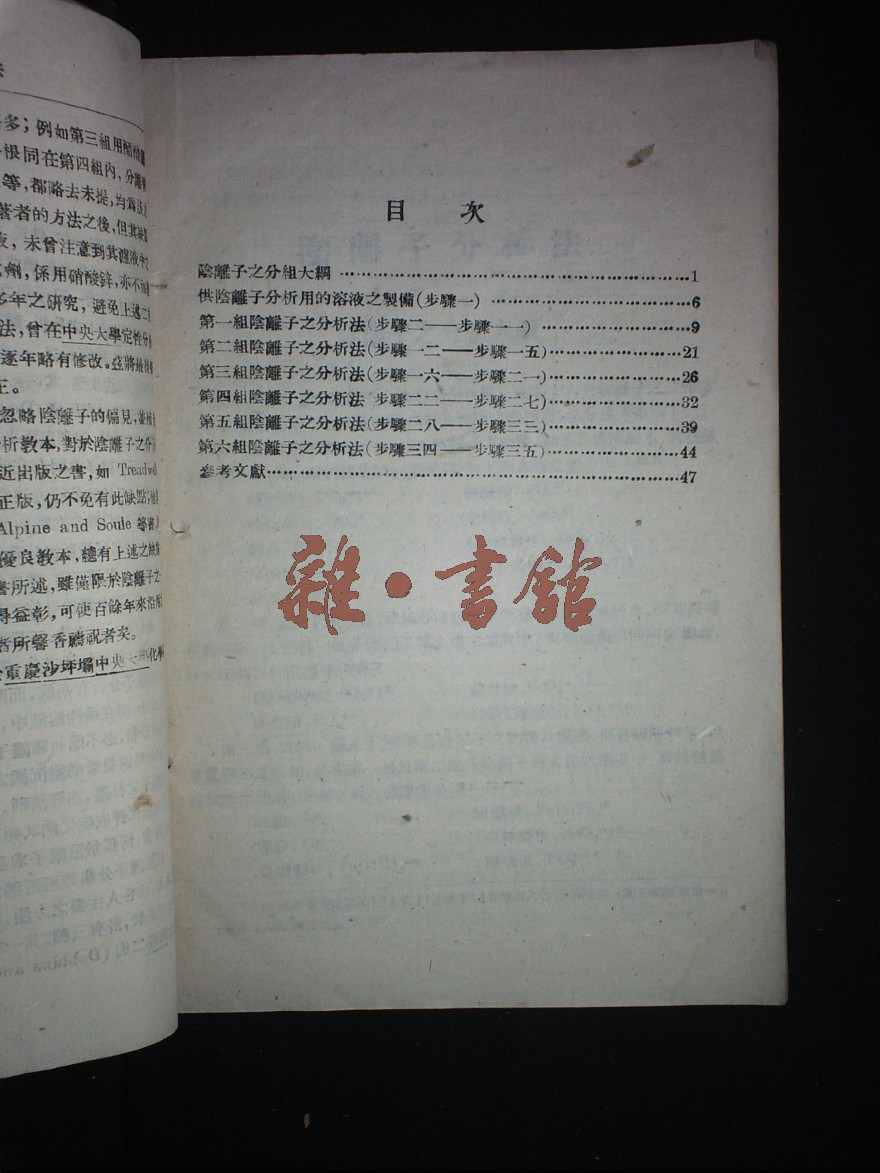 多；例如第三組用醋酸
根同在第四組內，分離
等，都略去未提，均爲
著者的方法之後，但其
液，未曾注意到其濾液中之
劑，係用硝酸鋅，亦不
多年之硏究，避免上述二
法，曾在中央大學定性分
逐年略有修改。茲將最
正。
忽略陰離子的偏見，並
析敎本，對於陰離子之分
近出版之書，如 Treadwell
正版，仍不免有此缺點；
Alpine and Soule 等
優良敎本，總有上述之
書所述，雖僅限於陰離子之
得益彰，可使百餘年來沿
者所馨香禱祝者矣。
重慶沙坪壩中央大學化學
目次
陰離子之分組大綱…………1
供陰離子分析用的溶液之製備(步驟一)…………6
第一組陰離子之分析法(步驟二——步驟一一)…………9
第二組陰離子之分析法(步驟一二——步驟一五)…………21
第三組陰離子之分析法(步驟一六——步驟二一)…………26
第四組陰離子之分析法(步驟二二——步驟二七)…………32
第五組陰離子之分析法(步驟二八——步驟三三)…………39
第六組陰離子之分析法(步驟三四——步驟三五)…………44
參考文獻…………47
雜·書舘